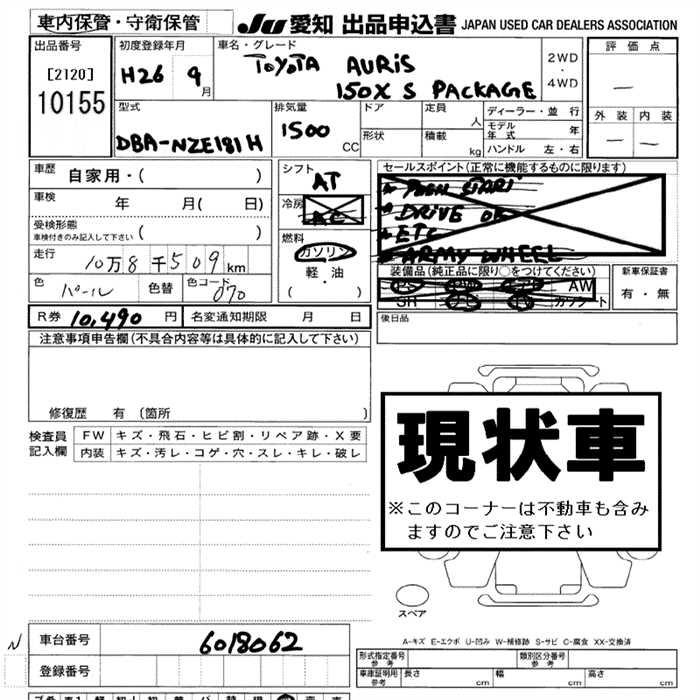 車内保管・守衛保管
JU 愛知 出品申込書 JAPAN USED CAR DEALERS ASSOCIATION
出品番号
[2120]
10155
初度登録年月
H26 9月
車名・グレード
TOYOTA AURIS
150X S PACKAGE
2WD
・
4WD
評価点
—
外装 内装
— —
型式
DBA-NZE181H
排気量
1500 CC
ドア
形状
定員 人
積載 kg
ディーラー・並行
モデル年式 年
ハンドル 左・右
車歴 自家用・( )
車検 年 月( 日)
受検形態
車検付きのみ記入して下さい ( )
走行 10万8千509km
色 パール 色替 色コード 070
シフト AT
冷房 AC
燃料
ガソリン
軽・油
( )
セールスポイント(正常に機能するものに限ります)
DRIVE
ETC
WHEEL
装備品(純正品に限り○をつけてください)
PS PW AW
SR カセット
新車保証書
有・無
R券 10,490円 名変通知期限 月 日
後日品
注意事項申告欄(不具合内容等は具体的に記入して下さい)
修復歴 有(箇所 )
検査員記入欄
FW キズ・飛石・ヒビ割・リペア跡・X要
内装 キズ・汚レ・コゲ・穴・スレ・キレ・破レ
現状車
※このコーナーは不動車も含み
ますのでご注意下さい
スペア
A-キズ E-エクボ U-凹み W-補修跡 S-サビ C-腐食 XX-交換済
N
車台番号 6018062
登録番号
形式指定番号 参考
類別区分番号 参考
車庫証明用 参考 長さ cm 幅 cm 高さ cm